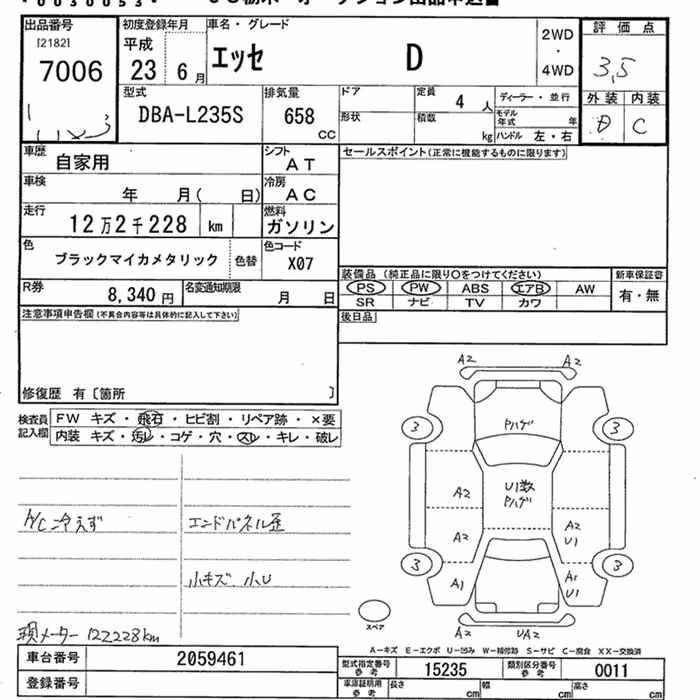 出品番号 初度登録年月 車名・グレード 評価点
[2182] 平成 エッセ D 2WD・4WD 3,5
7006 23 6月
型式 排気量 ドア 定員 4人 ディーラー・並行 外装 内装
DBA-L235S 658 CC 形状 積載 kg モデル年式 年 C
ハンドル 左・右
車歴 自家用 シフト AT セールスポイント(正常に機能するものに限ります)
車検 年 月( 日) 冷房 AC
走行 12万2千228 km 燃料 ガソリン
色 ブラックマイカメタリック 色替 色コード X07
装備品(純正品に限り○をつけてください) 新車保証書
R券 8,340円 名変通知期限 月 日 PS PW ABS エアB AW 有・無
SR ナビ TV カワ
注意事項申告欄(不具合内容等は具体的に記入して下さい) 後日品
修復歴 有〔箇所 〕
検査員記入欄 FW キズ・飛石・ヒビ割・リペア跡・×要
内装 キズ・汚レ・コゲ・穴・スレ・キレ・破レ
A2 A2
3 Pハゲ 3
A2 U1数 Pハゲ
A/C冷えず エンドパネル歪 A2 A2 U1
3 3
小キズ 小U A1 A1 U1
スペア A2 UA2
現メーター 122228km
A-キズ E-エクボ U-凹み W-補修跡 S-サビ C-腐食 XX-交換済
車台番号 2059461 型式指定番号 参考 15235 類別区分番号 参考 0011
登録番号 車庫証明用 参考 長さ cm 幅 cm 高さ cm